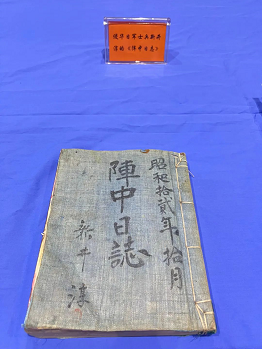 侵华日军士兵新井
淳的《阵中日志》
昭和拾貳年拾月
陣中日誌
新井
淳